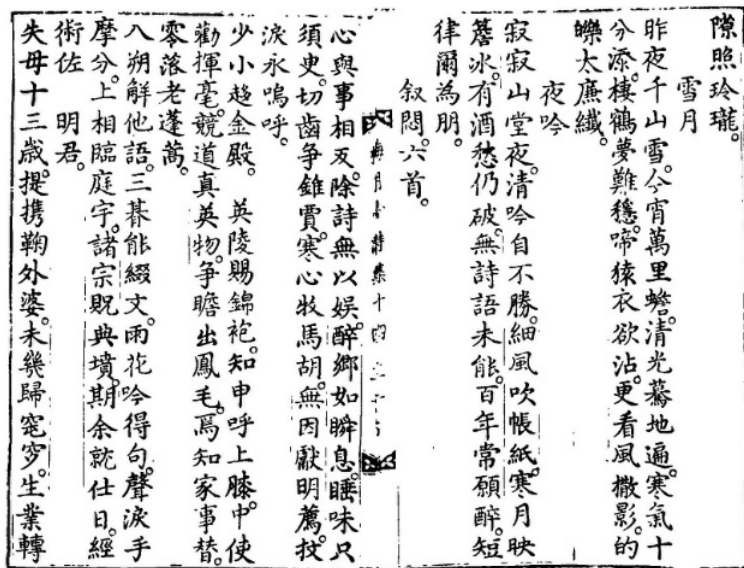 隙照玲瓏。
雪月
昨夜千山雪。今宵萬里蟾。清光驀地遍。寒氣十
分添。棲鶴夢難穩。啼猿衣欲沾。更看風撒影。的
皪太廉纖。
夜吟
寂寂山堂夜。清吟自不勝。細風吹帳紙。寒月映
簷氷。有酒愁仍破。無詩語未能。百年常願醉。短
律爾為朋。
叙悶。六首。
梅月堂詩集十四
心與事相反。除詩無以娛。醉鄉如瞬息。睡味只
須臾。切齒爭錐賈。寒心牧馬胡。無因獻明薦。抆
淚永嗚呼。
少小趨金殿。 英陵賜錦袍。知申呼上膝。中使
勸揮毫。競道真英物。爭瞻出鳳毛。焉知家事替。
零落老蓬蒿。
八朔解他語。三朞能綴文。雨花吟得句。聲淚手
摩分。上相臨庭宇。諸宗貺典墳。期余就仕日。經
術佐 明君。
失母十三歲。提携鞠外婆。未幾歸窀穸。生業轉